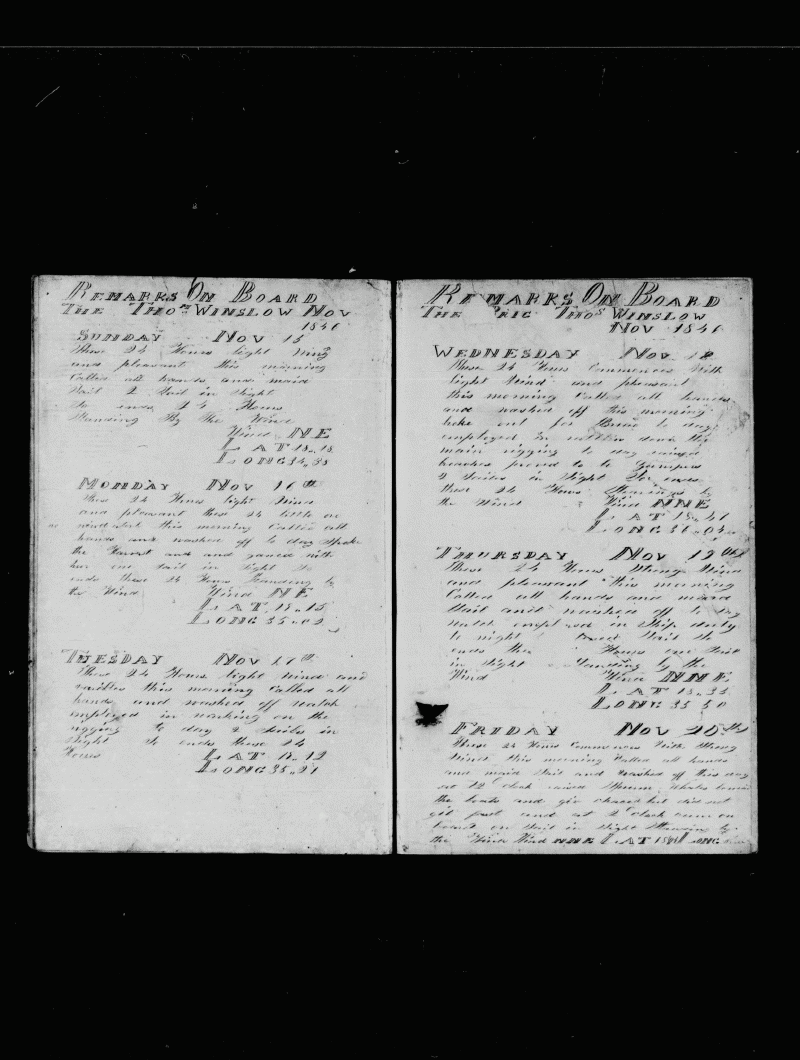 REMARKS ON BOARD
THE THOS WINSLOW NOV
1846
SUNDAY NOV 15
These 24 Hours light Wind
and pleasant this morning
Called all hands and maid
Sail 2 Sail in Sight
So ends 24 Hours
Standing By the Wind
Wind NE
LAT 18,,18
LONG 34,,38
MONDAY NOV 16th
These 24 Hours light Wind
and pleasant these 24 little or
wind this morning Called all
hands and washed off to day Spoke
the and gamed with
her one Sail in Sight So
ends these 24 Hours Standing by
the Wind Wind NE
LAT 18,,15
LONG 35,,02
TUESDAY NOV 17th
These 24 Hours light Wind and
varibles this morning Called all
hands and washed off watch
employed in working on the
rigging to day 2 Sails in
Sight So ends these 24
Hours LAT 18,,12
LONG 35,,21
REMARKS ON BOARD
THE BRIG THOS WINSLOW
NOV 1846
WEDNESDAY NOV 18
These 24 Hours Commences With
light Wind and pleasant
this morning Called all hands
and washed off this morning
broke out for Bread to day
employed in rattlen down the
main rigging to day raised
proved to be Jumpers
2 Sailes in Sight So ends
these 24 Hours Standing by
the Wind Wind NNE
LAT 18,,41
LONG 36,,04
THURSDAY NOV 19th
These 24 Hours Strong Wind
and pleasant this morning
Called all hands and maid
Sail and washed off to day
watch employed in Ship duty
to night Sail So
ends the Hours one Sail
in Sight Standing by the
Wind Wind NNE
LAT 18,,32
LONG 35 50
FRIDAY NOV 20th
These 24 Hours Commences With Strong
Wind this morning Called all hands
and maid Sail and washed off this day
at 12 Clock raised Sperm Whales
the boats and giv chase but did not
git fast and at 2 Clock cum on
board on Sail in Sight Standing by
the Wind Wind NNE LAT LONG